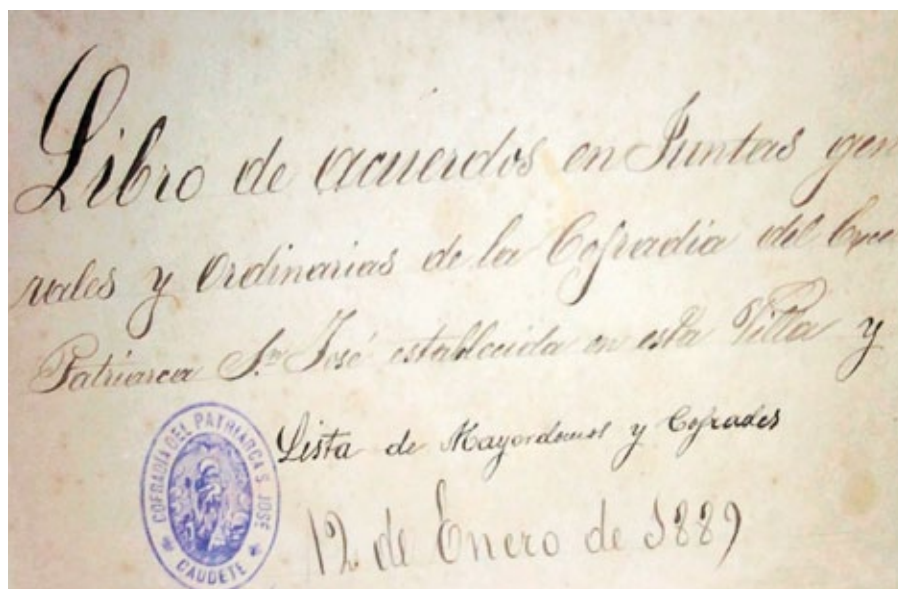 Libro de acuerdos en Juntas gen
rales y Ordinarias de la Cofradia del
Patriarca Sn José establecida en esta Villa y
Lista de Mayordomos y Cofrades
12 de Enero de 1889
COFRADIA DEL PATRIARCA S. JOSE
CAUDETE